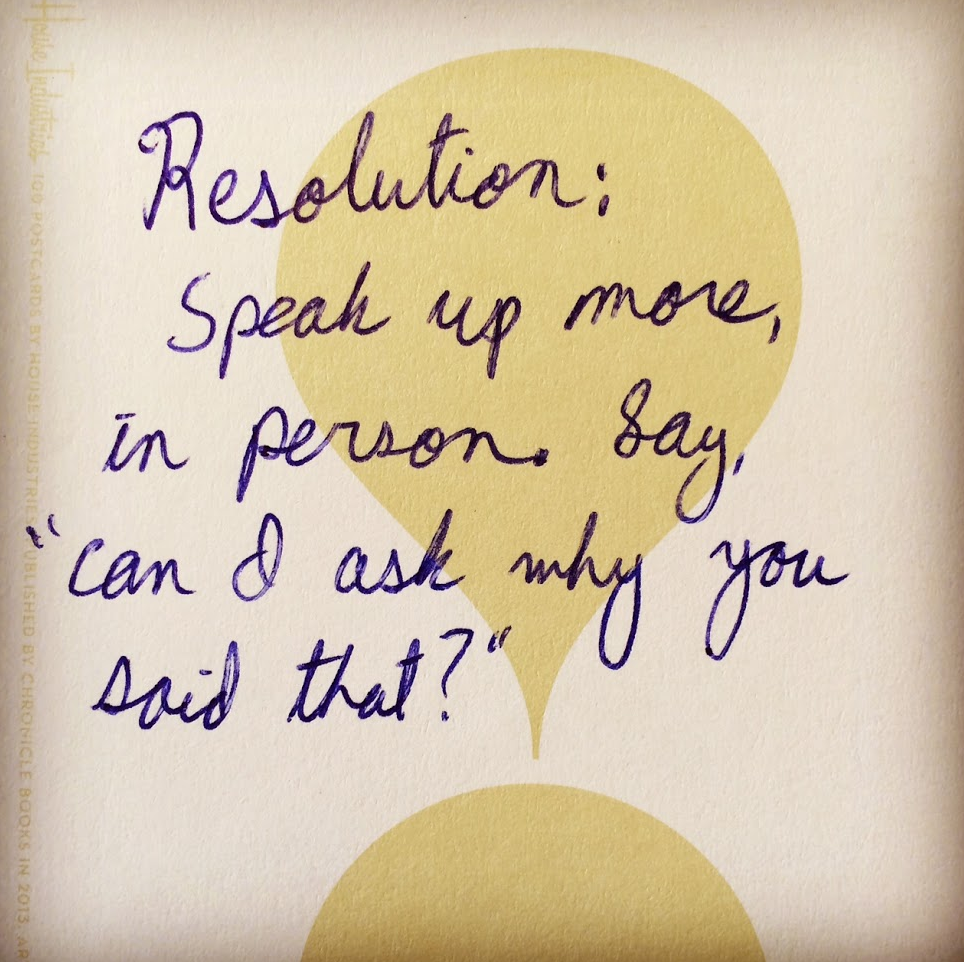 Resolution:
Speak up more,
in person. Say,
"can I ask why you
said that?"
House Industries 100 POSTCARDS BY HOUSE INDUSTRIES PUBLISHED BY CHRONICLE BOOKS IN 2013. AR